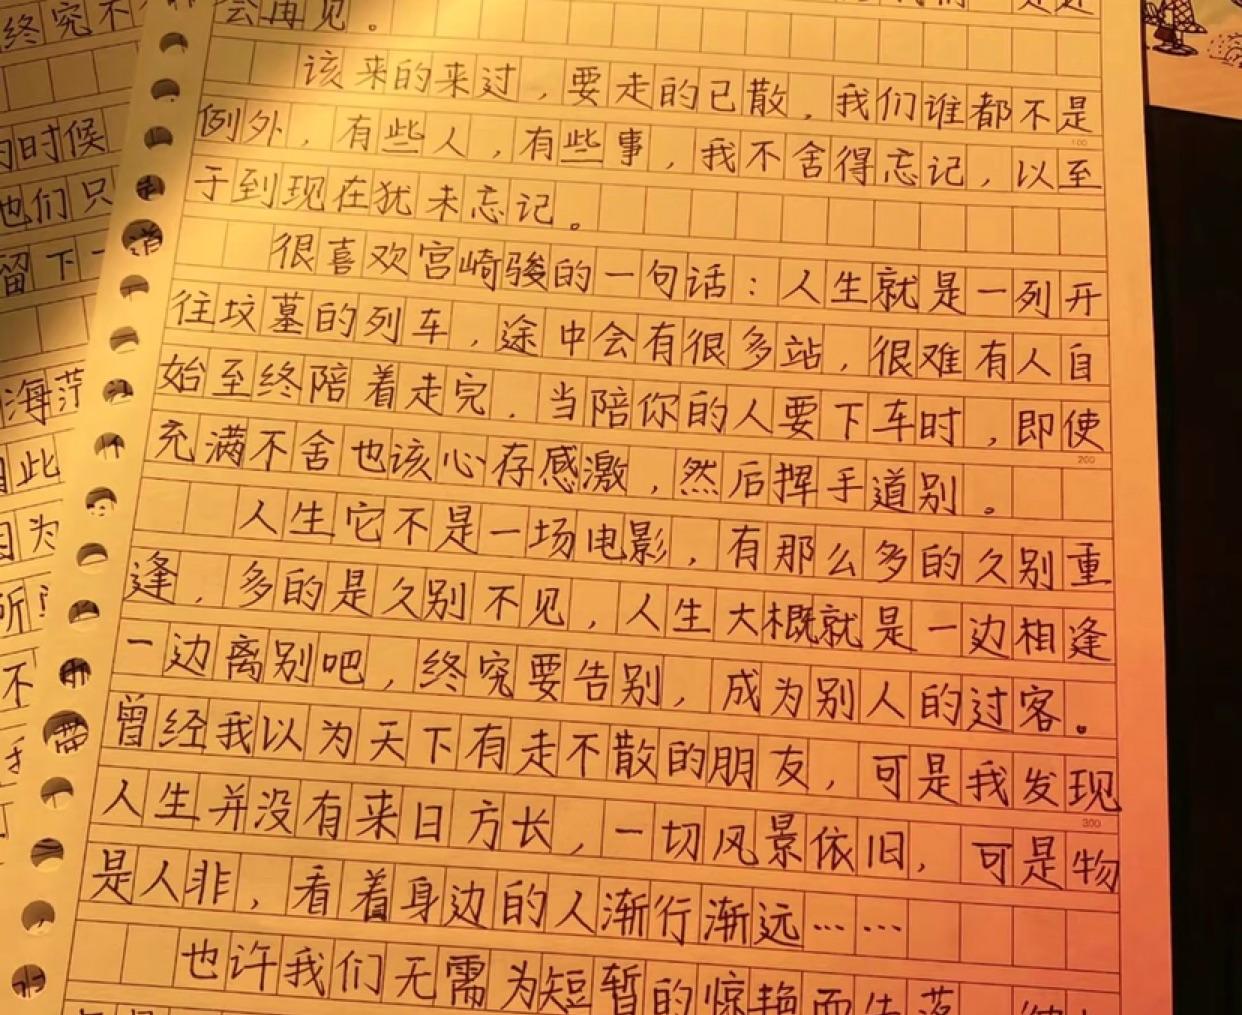 会再见。
该来的来过，要走的已散，我们谁都不是
例外，有些人，有些事，我不舍得忘记，以至
于到现在犹未忘记。
很喜欢宫崎骏的一句话：人生就是一列开
往坟墓的列车，途中会有很多站，很难有人自
始至终陪着走完．当陪你的人要下车时，即使
充满不舍也该心存感激，然后挥手道别。
人生它不是一场电影，有那么多的久别重
逢．多的是久别不见，人生大概就是一边相逢
一边离别吧，终究要告别，成为别人的过客。
曾经我以为天下有走不散的朋友，可是我发现
人生并没有来日方长，一切风景依旧，可是物
是人非，看着身边的人渐行渐远……
也许我们无需为短暂的惊艳而失落
终究不
时候
他们只
留下一
海茫
因为
不
100
200
300